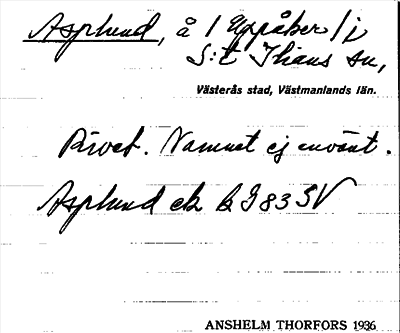 Asplund, å / Uppåker / i
S:t Ilians sn,
Västerås stad, Västmanlands län.
Rivet. Namnet ej använt.
Asplund ek bl 83 SV
ANSHELM THORFORS 1936